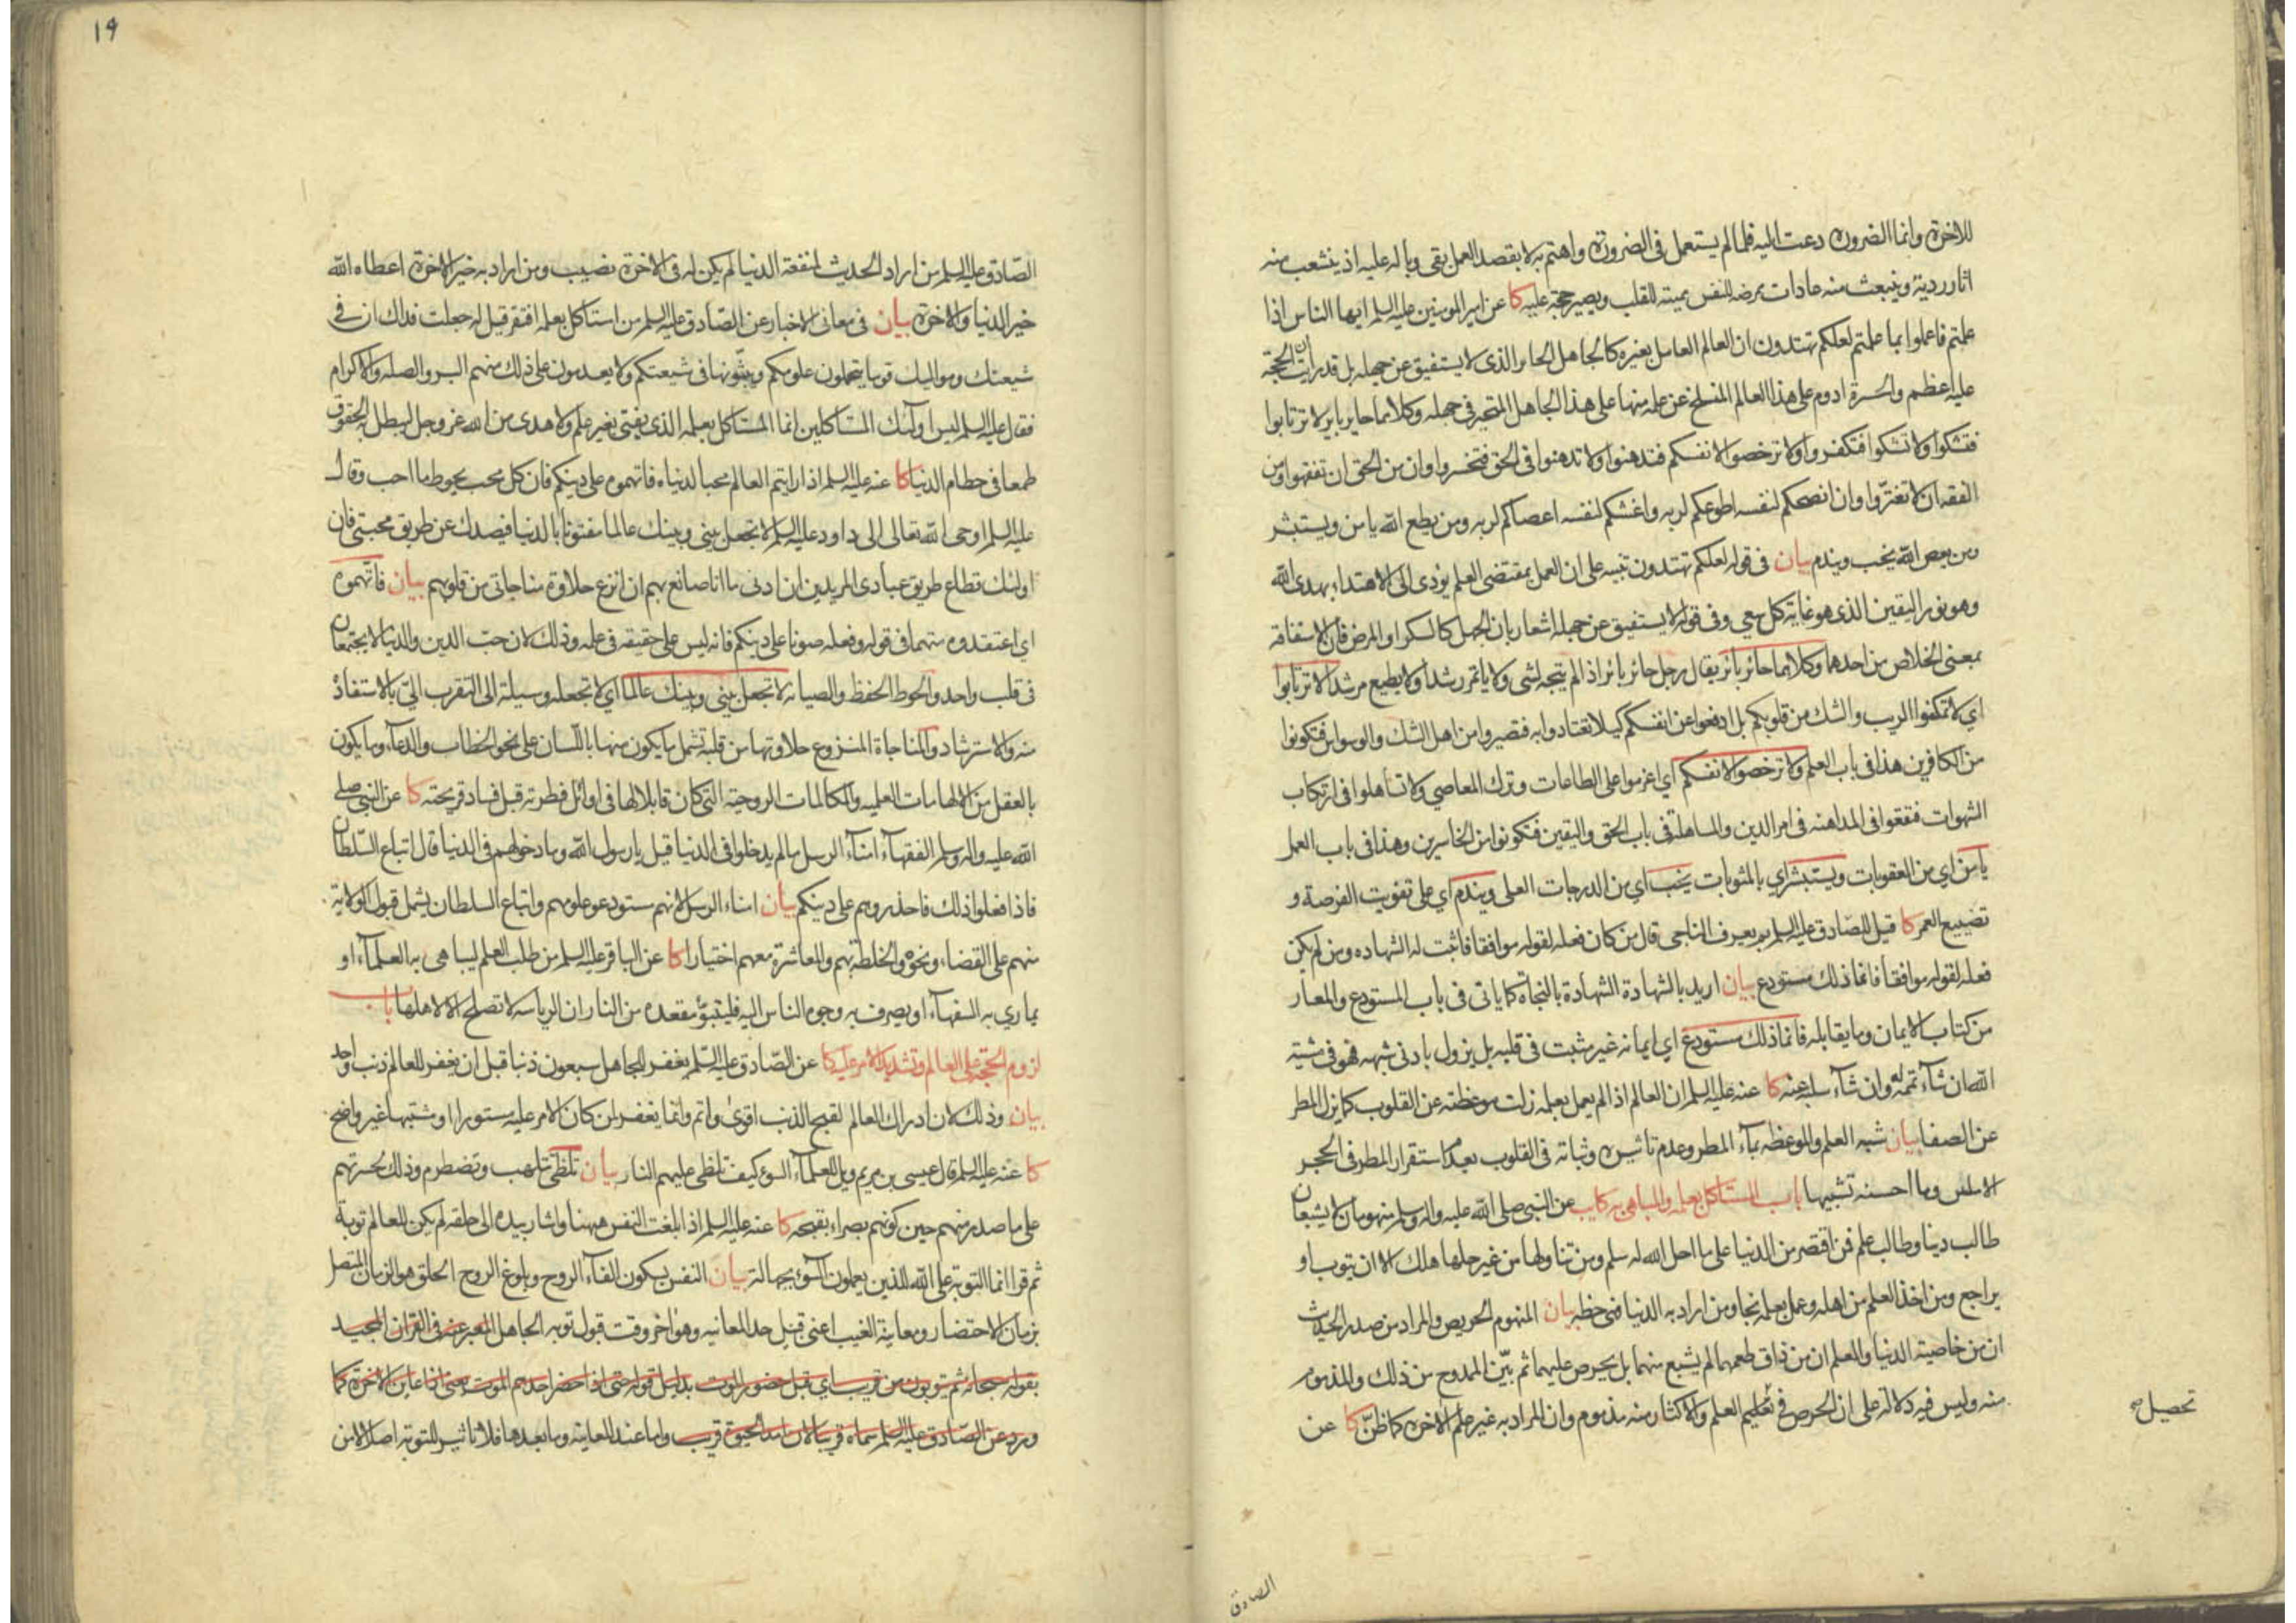 للاخرة وانما الضرورة دعت اليه فلما لم يستعمل فى الضرورة واهتم به لا بقصد العمل بقى وباله عليه اذ ينشعب منه
اثار ردية وينبعث منه عادات ممرضه للنفس مميته للقلب ويصير حجة عليه كا عن امير المومنين عليه السلم ايها الناس اذا
علمتم فاعملوا بما علمتم لعلكم تهتدون ان العالم العامل بغيره كالجاهل الحاير الذى لا يستفيق عن جهله بل قد رايت ان الحجة
عليه اعظم والحسرة ادوم على هذا العالم المنسلخ عن علمه منها على هذا الجاهل المتحير فى جهله وكلاهما حاير باير لا ترتابوا
فتشكوا ولا تشكوا فتكفروا ولا ترخصوا لانفسكم فتدهنوا ولا تدهنوا فى الحق فتخسروا وان من الحق ان تفقهوا ومن
الفقه ان لا تغترّوا وان انصحكم لنفسه اطوعكم لربه واغشكم لنفسه اعصاكم لربه ومن يطع الله يامن ويستبشر
ومن يعص الله يخب ويندم بيان فى قوله لعلكم تهتدون تنبيه على ان العمل بمقتضى العلم يؤدى الى الاهتداء بهدى الله
وهو نور اليقين الذى هو غاية كل سعى وفى قوله لا يستفيق عن جهله اشعار بان الجهل كالسكر او المرض فان الاستفاقة
بمعنى الخلاص من احدهما وكلاهما حائر بائر يقال رجل حائر بائر اذا لم يتجه لشى ولا ياتمر رشدا ولا يطيع مرشدا لا ترتابوا
اي لا تمكنوا الريب والشك من قلوبكم بل ادفعوا عن انفسكم كيلا تعتادوا به فتصيروا من اهل الشك والوسواس فتكونوا
من الكافرين هذا فى باب العلم ولا ترخصوا لانفسكم اي اعزموا على الطاعات وترك المعاصي ولا تساهلوا فى ارتكاب
الشهوات فتقعوا فى المداهنه فى امر الدين والمساهلة فى باب الحق واليقين فتكونوا من الخاسرين وهذا فى باب العمل
يامن اي من العقوبات ويستبشر اي بالمثوبات يخب اي من الدرجات العلى ويندم اي على تفويت الفرصة و
تضييع العمر كا قيل للصّادق عليه السلم بم يعرف الناجى قال من كان فعله لقوله موافقا فاثبت له الشهاده ومن لم يكن
فعله لقوله موافقا فانما ذلك مستودع بيان اريد بالشهادة الشهادة بالنجاة كما ياتى فى باب المستودع والمعار
من كتاب الايمان وما يقابله فانما ذلك مستودع اي ايمانه غير مثبت فى قلبه بل يزول بادنى شبهه فهو فى مشية
الله ان شاء تممه له وان شاء سلبه عنه كا عنه عليه السلم ان العالم اذا لم يعمل بعلمه زلت موعظته عن القلوب كما يزل المطر
عن الصفا بيان شبه العلم والموعظه بماء المطر وعدم تاثيره وثباته فى القلوب بعدم استقرار المطر فى الحجر
الاملس وما احسنه تشبيها باب المستاكل بعلمه والمباهى به كا عن النبى صلى الله عليه واله وسلم منهومان لا يشبعان
طالب دينا وطالب علم فمن اقتصر من الدنيا على ما احل الله له سلم ومن تناولها من غير حلها هلك الا ان يتوب او
يراجع ومن اخذ العلم من اهله وعمل بعلمه نجا ومن اراد به الدنيا فهى حظه بيان المنهوم الحريص والمراد من صدر الحديث
ان من خاصية الدنيا والعلم ان من ذاق طعمهما لم يشبع منهما بل يحرص عليهما ثم بيّن الممدوح من ذلك والمذموم
منه وليس فيه دلالة على ان الحرص فى تعليم العلم والاكثار منه مذموم وان المراد به غير علم الاخرة كما ظنّ كا عن
تحصيل
الصادق
١٩
الصّادق عليه السلم من اراد الحديث لمنفعة الدنيا لم يكن له فى الاخرة نصيب ومن اراد به خير الاخرة اعطاه الله
خير الدنيا والاخرة بيان فى معانى الاخبار عن الصّادق عليه السلم من استاكل بعلمه افتقر قيل له جعلت فداك ان فى
شيعتك ومواليك قوما يتحملون علومكم ويبثّونها فى شيعتكم ولا يعدمون على ذلك منهم البر والصله والاكرام
فقال عليه السلم ليس اولئك المستاكلين انما المستاكل بعلمه الذى يفتى بغير علم ولا هدى من الله عز وجل ليبطل به الحقوق
طمعا فى حطام الدنيا كا عنه عليه السلم اذا رايتم العالم محبا لدنياه فاتهموه على دينكم فان كل محب يحوط ما احب وقال
عليه السلم اوحى الله تعالى الى داود عليه السلم لا تجعل بينى وبينك عالما مفتونا بالدنيا فيصدك عن طريق محبتى فان
اولئك قطاع طريق عبادى المريدين ان ادنى ما انا صانع بهم ان انزع حلاوة مناجاتى من قلوبهم بيان فاتّهموه
اي اعتقدوه متهما فى قوله وفعله صونا على دينكم فانه ليس على حقيقه فى علمه وذلك لان حبّ الدين والدنيا لا يجتمعان
فى قلب واحد والحوط الحفظ والصيانه لا تجعل بينى وبينك عالما اي لا تجعله وسيلة الى التقرب الىّ بالاستفادة
منه والاسترشاد والمناجاة المنزوع حلاوتها من قلبه تشمل ما يكون منها باللّسان على نحو الخطاب والدعاء وما يكون
بالعقل من الالهامات العلميه والمكالمات الروحية التى كان قابلا لها فى اوائل فطرته قبل فساد قريحته كا عن النبى صلى
الله عليه واله وسلم الفقهاء امناء الرسل ما لم يدخلوا فى الدنيا قيل يا رسول الله وما دخولهم فى الدنيا قال اتباع السّلطان
فاذا فعلوا ذلك فاحذروهم على دينكم بيان امناء الرسل لانهم مستودعو علومهم واتباع السلطان يشمل قبول الولاية
منهم على القضاء ونحوه والخلطة بهم والمعاشرة معهم اختيارا كا عن الباقر عليه السلم من طلب العلم ليباهى به العلماء او
يمارى به السفهاء او يصرف به وجوه الناس اليه فليتبوّء مقعده من النار ان الرياسه لا تصلح الا لاهلها باب
لزوم الحجّة على العالم وتشديد الامر عليه كا عن الصّادق عليه السّلم يغفر للجاهل سبعون ذنبا قبل ان يغفر للعالم ذنب واحد
بيان وذلك لان ادراك العالم لقبح الذنب اقوى واتم وانما يغفر لمن كان الامر عليه مستورا او مشتبها غير واضح
كا عنه عليه السلم قال عيسى بن مريم ويل للعلماء السوء كيف تلظى عليهم النار بيان تلظى تلهب وتضطرم وذلك لحسرتهم
على ما صدر منهم حين كونهم بصراء بقبحه كا عنه عليه السلم اذا بلغت النفس ههنا واشار بيده الى حلقه لم يكن للعالم توبة
ثم قرا انما التوبة على الله للذين يعملون السّوء بجهالة بيان النفس بسكون الفاء الروح وبلوغ الروح الحلق هو الزمان المتصل
بزمان الاحتضار ومعاينة الغيب اعنى قبل حد المعاينه وهو اخر وقت قبول توبه الجاهل المعبر عنه فى القران المجيد
بقوله سبحانه ثم يتوبون من قريب اي قبل حضور الموت بدليل قوله حتى اذا حضر احدهم الموت يعنى اذا عاين الاخرة كما
ورد عن الصّادق عليه السلم سماه قريبا لان امد الحيوة قريب واما عند المعاينه وما بعدها فلا تاثير للتوبه اصلا لامن